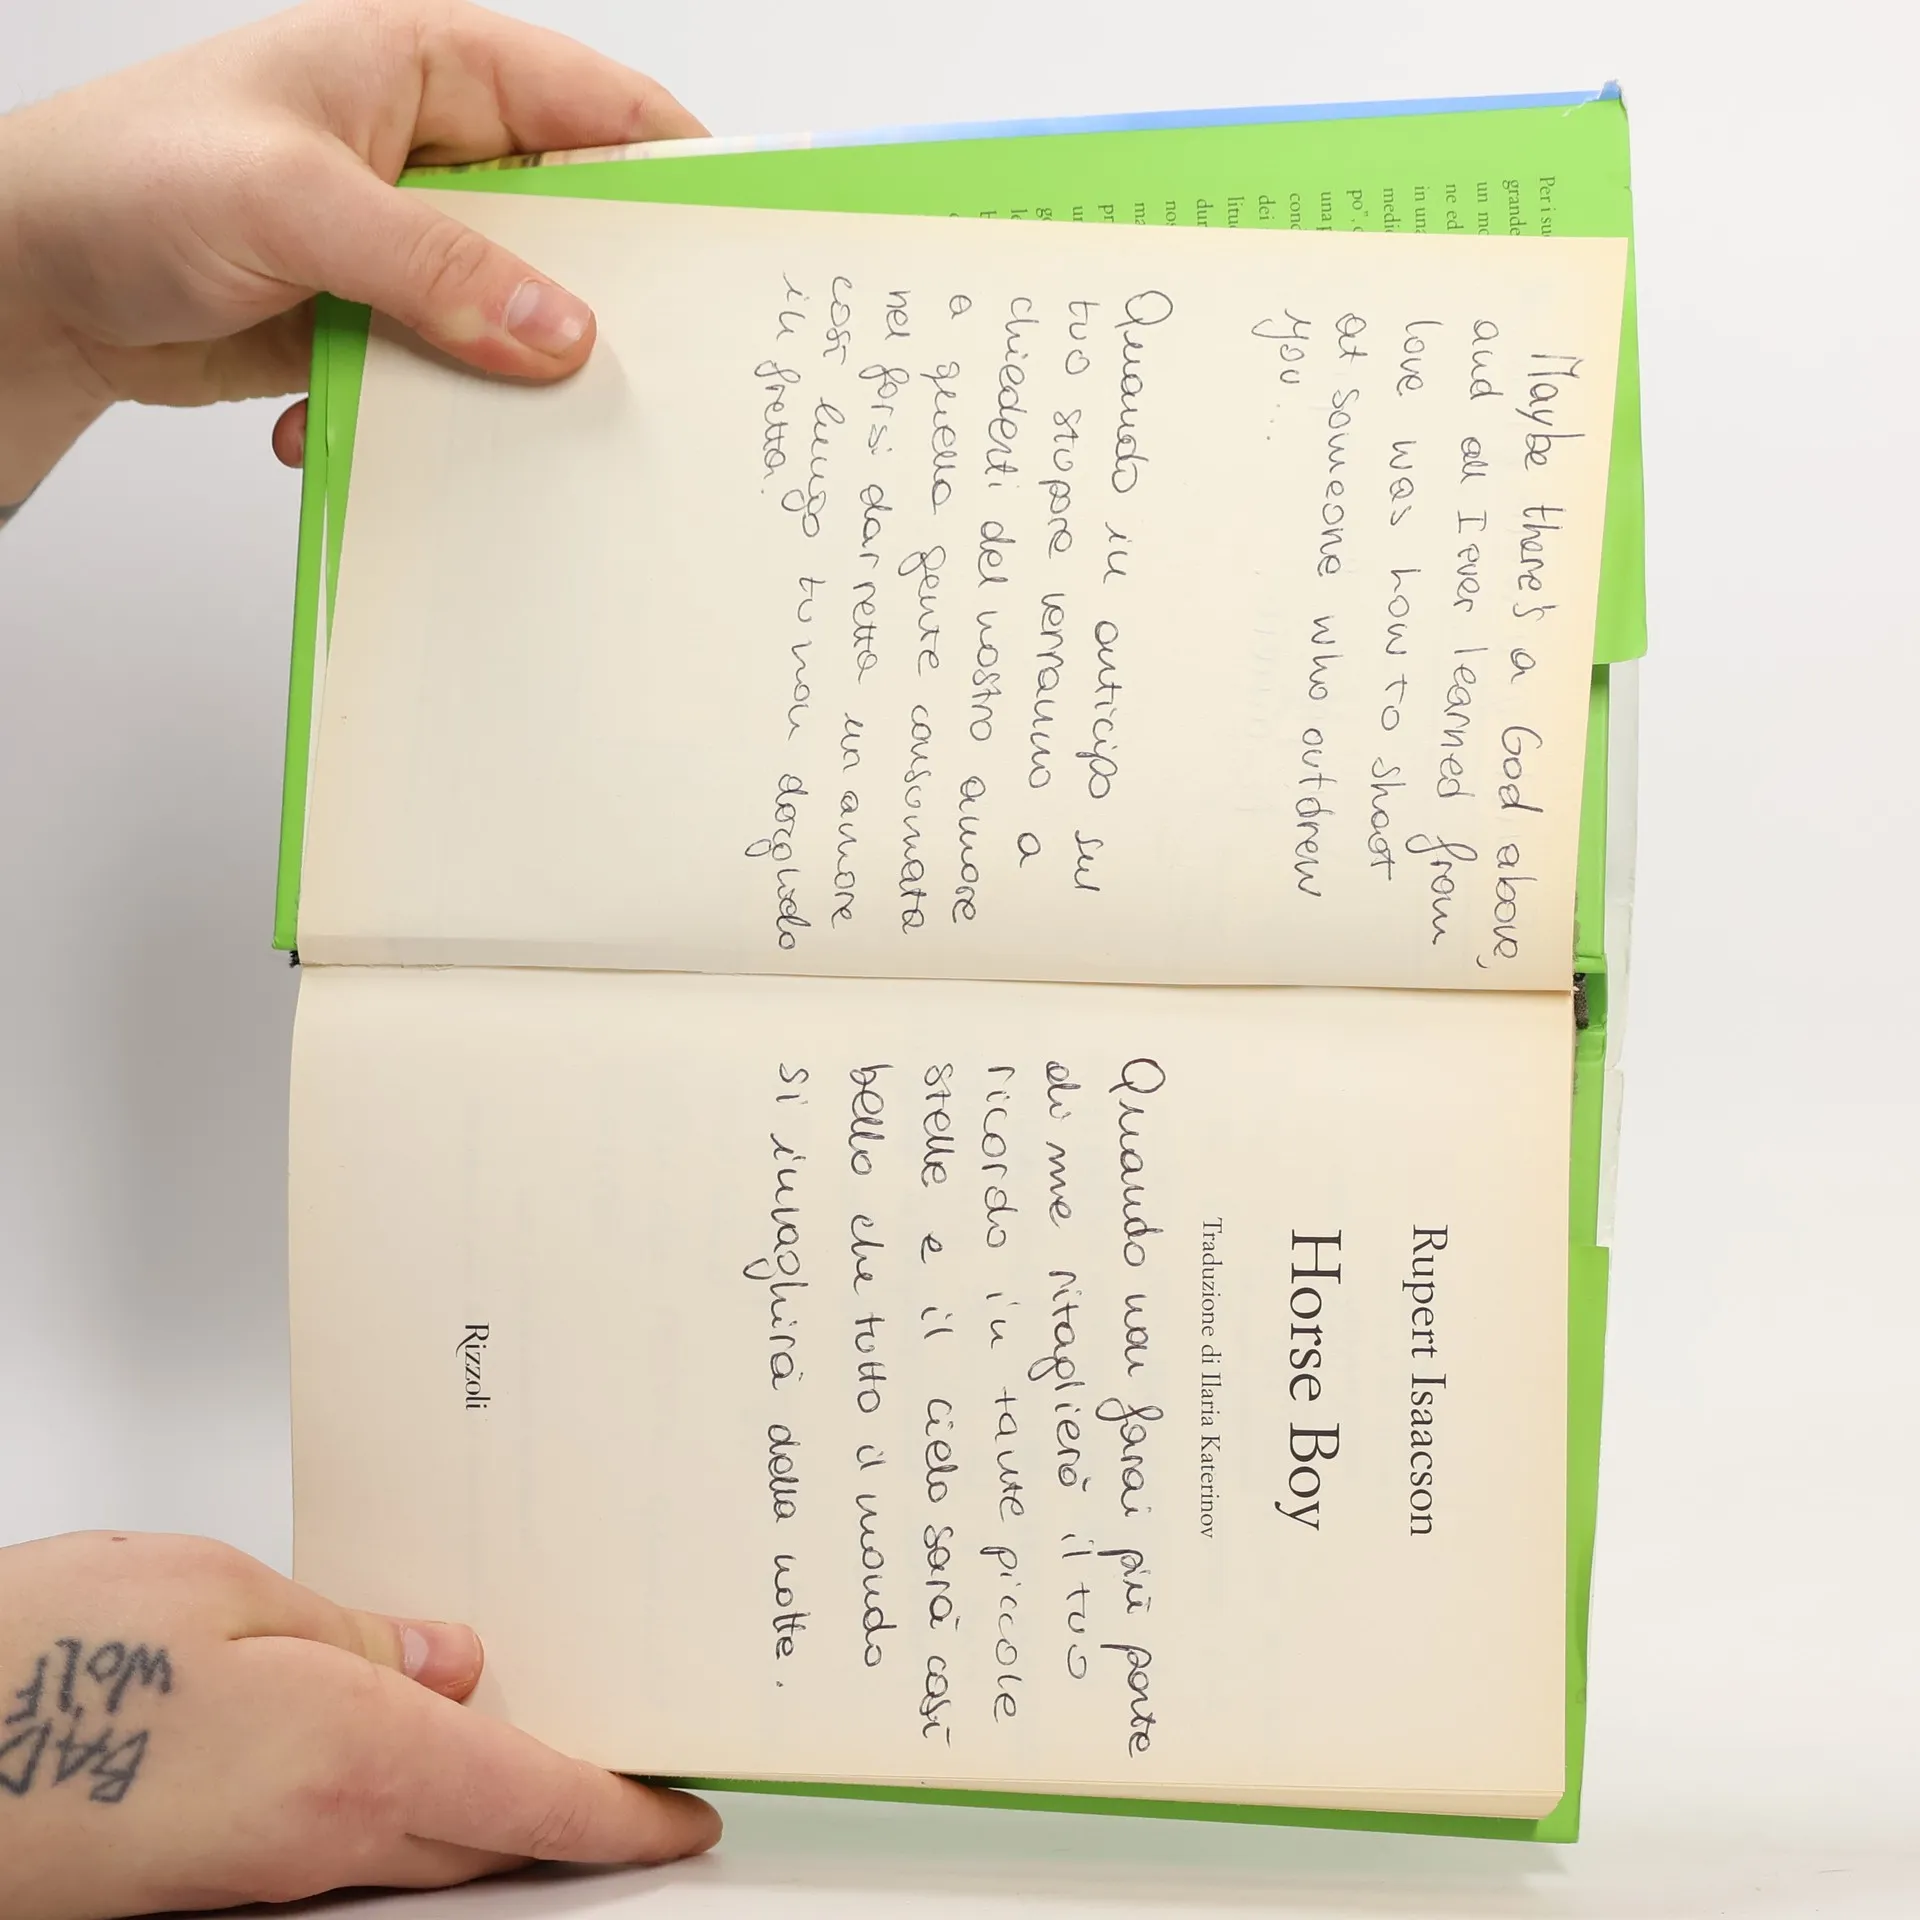 Maybe there's a God above,
and all I ever learned from
love was how to shoot
at someone who outdrew
you...
Quando in anticipo sul
tuo stupore verranno a
chiederti del nostro amore
a quella gente consumata
nel farsi dar retta un amore
così lungo tu non darglielo
in fretta.
Rupert Isaacson
Horse Boy
Traduzione di Ilaria Katerinov
Quando non farai più parte
di me ritaglierò il tuo
ricordo in tante piccole
stelle e il cielo sarà così
bello che tutto il mondo
si invaghirà della notte.
Rizzoli
Per i su
grande
un mo
ne ed
in una
medi
po", c
una
conc
dei
litu
dur
nos
ma
pr
un
BAD
WOLF